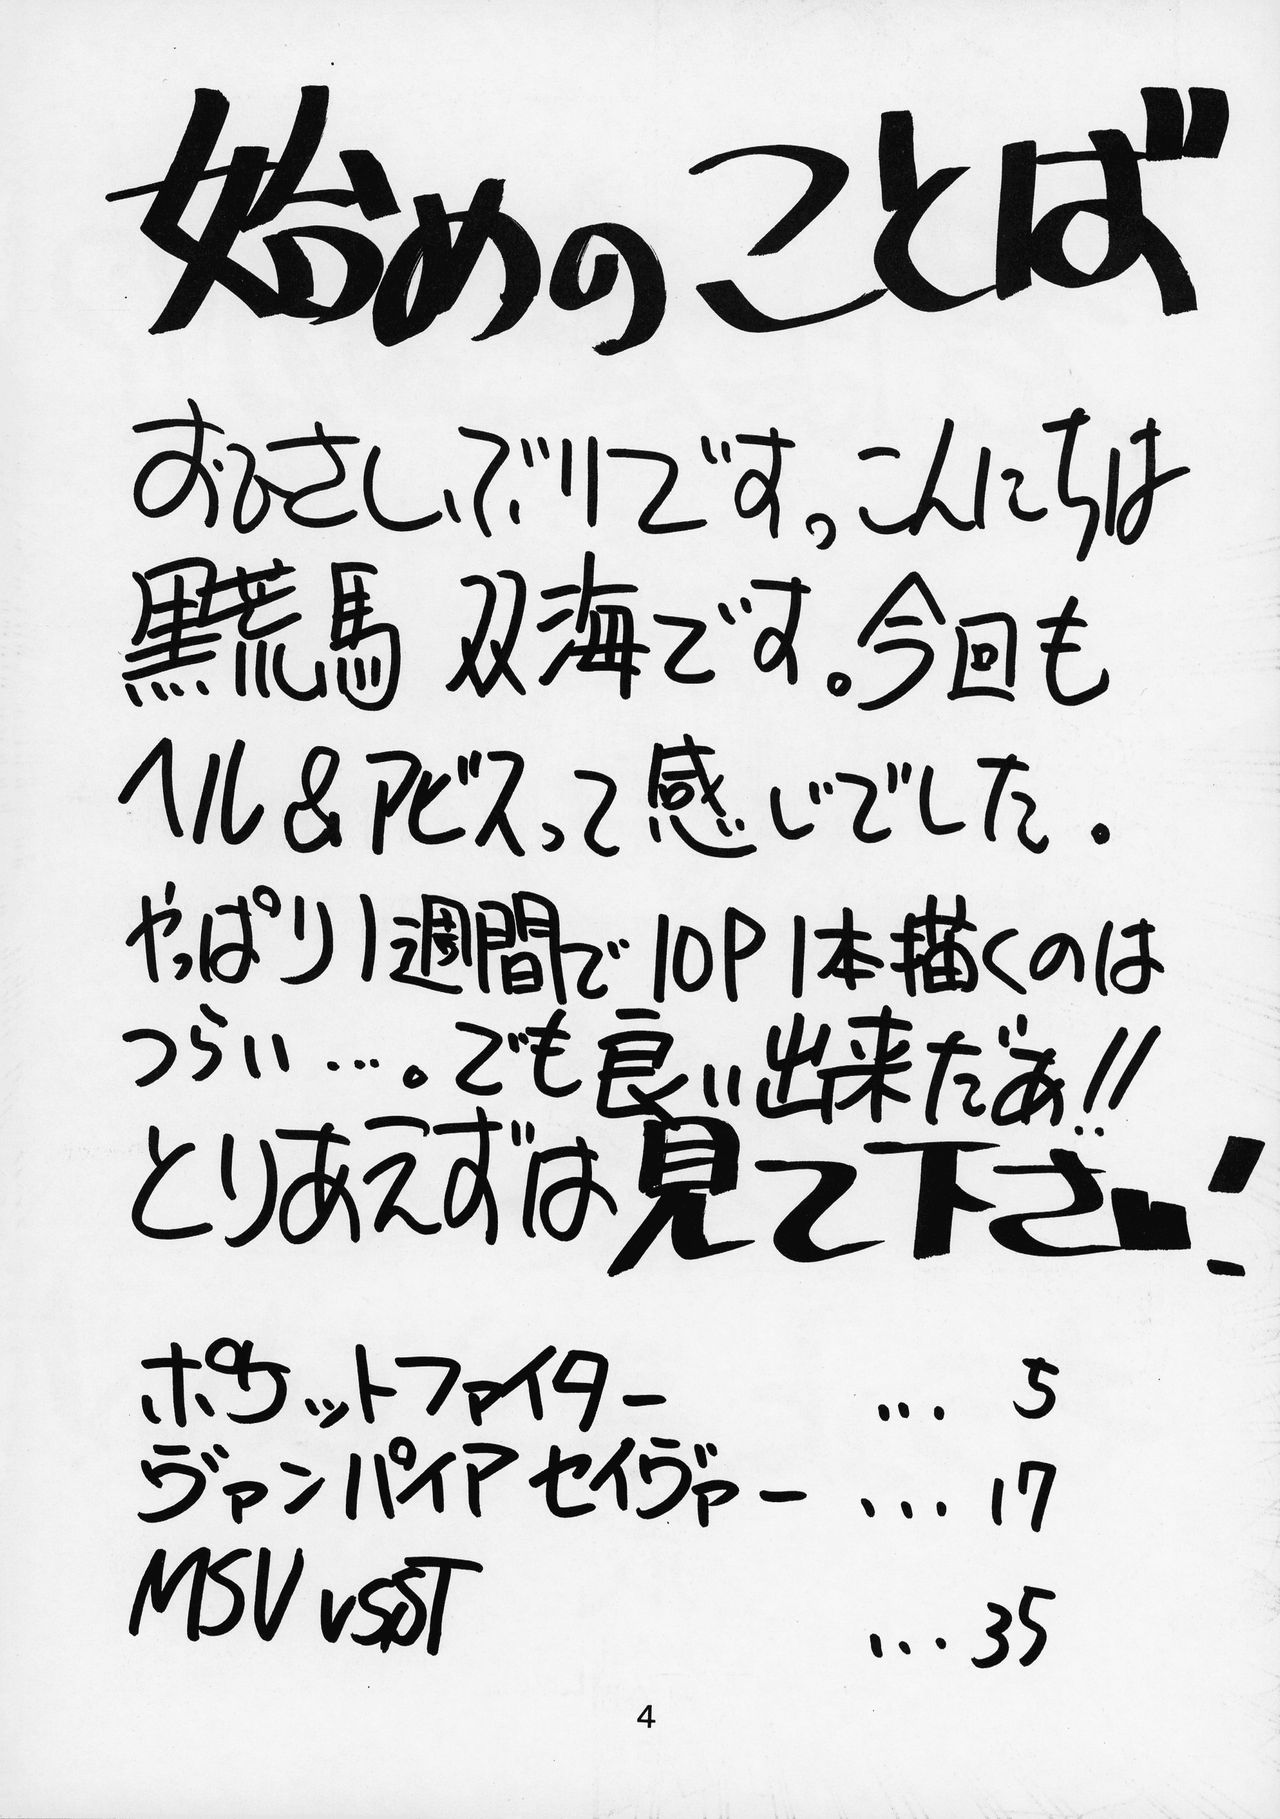 始めのことば
おひさしぶりです。こんにちは
黒荒馬 双海です。今回も
ヘル&アビスって感じでした。
やっぱり1週間で10P1本描くのは
つらい…。でも良い出来だぁ!!
とりあえずは見て下さい!
ポケットファイター ... 5
ヴァンパイアセイヴァー ... 17
MSV vs ST ... 35
4